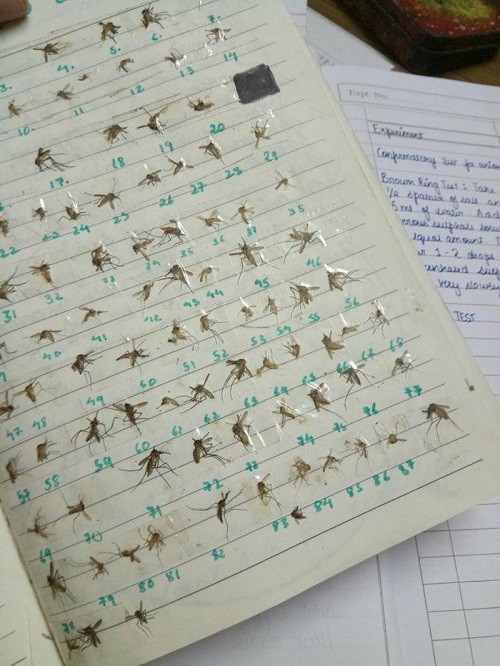 3. 4. 5. 6. 7.
10. 11 12 13 14
17. 18 19 20
22 23 24 25 26 27 28 29
31 32 33 34 35 36 37 38
40 41 42 43 44 45 46
47 48 49 50 51 52 53 54 55 56
57 58 59 60 61 62 63 64 65 66 67 68
69 70 71 72 73 74 75 76 77
78 79 80 81 82 83 84 85 86 87
Expt. No.
Experiment
Confirmatory Test for
Brown Ring Test : Take
of salt
5 ml of water. Add
sulphate
equal amount
1-2 drops
very slowly
TEST